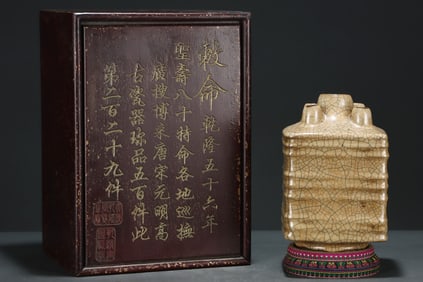 敕命 乾隆五十六年
聖壽八十特命各地巡撫
廣搜博采唐宋元明高
古瓷器珍品五百件此
第二百二十九件